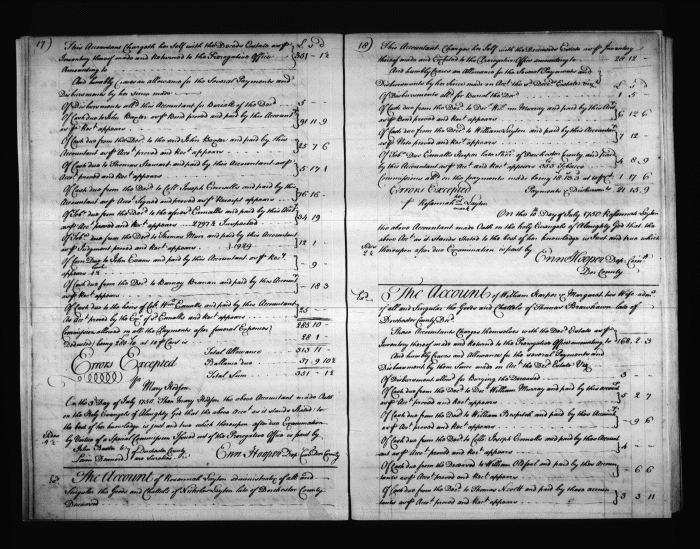 17)
This Accountant Chargeth her Self with the Deceds Estate as pr
Inventory thereof made and Returned to the Prerogative Office
Amounting to
£ s d
331 - 1½
And humbly craves an allowance for the Several Payments and
Disbursments by her Since made
Of Disbursments alld this Accountant for Burialle of the Decd 5 -
Of Cash due to John Baxter as pr Bond proved and paid by this Account
as pr Rect appears 91 11 9
Of Cash due from the Decd to the said John Baxter and paid by this
Accountant as pr Acct proved and Rect appears 25 7 6
Of Cash due to Thomas Stewart and paid by this Accountant as pr
Acct proved and Rect appears 5 17 1
Of Cash due from the Decd to Coll Joseph Ennalls and paid by the
Accountant as pr Acct Signed and proved as pr Receipt appears 76 16 -
Of Tobco due from the Decd to the aforsd Ennalls and paid by this Acct
as pr Acct proved and Rect appears 2797 lb Inspected 34 19
Of Tobco due from the Decd to Thomas Muir and paid by this Accountant
as pr Judgment proved and Rect appears 1929 12 1
Of Corn Due to John Evans and paid by this Accountant as pr Rect
appears - 9 -
Of Cash due from the Decd to Barney Branan and paid by this Acct
as pr Rect appears - 18 3
Of Cash due to the heirs of Coll Wm Ennalls and paid by this Accountant
as Acct proved by the Exr of sd Ennalls and Rect appears 25 -
285 10 -
Commission allowed on all the Payments after funeral Expences
Deducted being 280.10 at 10 pr Ct is 28 1 -
Errors Excepted
Total Allowance 313 11
Ballance due 37 9 10½
Total Sum 351 - 1½
pr Mary Hodson
On the 3 Day of July 1750 Then Mary Hodson the above accountant made Oath
on the Holy Evangels of Almighty God that the above Acct as it stands Stated to
the best of her knowledge is just and true which thereupon after due Examination
by Virtue of a Special Commission Issued out of the Prerogative Office is past by
Enn Hooper Dep Com Dor County
The Account of Rosannah Layton administratrix of all and
Singular the Goods and Chattels of Nicholas Layton late of Dorchester County
Deceased
18)
This Accountant Charges her Self with the Deceaseds Estate as pr Inventory
thereof made and Exhibited to the Prerogative Office amounting to 28 12 -
And humbly Craves an Allowance for the Several Payments and
Disbursments by her Since made in Acct the sd Decd Estate vizt £ s d
Of Disbursments alld for Burial the Decd 1 5 -
Of Cash due from the Decd to Docr Wm Murray and paid by this Acct
as pr Bond proved and Rect appears 6 12 6
Of Cash due from the Decd to William Layton and paid by this Accountant
as pr Note proved and Rect appears 7 12
Of Tobco due Ennalls Hooper late Sherf of Dorchester County and paid
by this Accountant as pr Acct proved and Rect appears 355 lb Tobacco 4 8 9
Commissions alld on the payments made being at 10 pr Ct 1 17 6
Errors Excepted Payments & Disburments 21 15 9
pr Rosannah Layton
On this 10 Day of July 1750 Rosannah Layton
the above Accountant made Oath on the Holy Evangels of Almighty God that the
above Acct as it stands Stated to the best of her knowledge is Just and true which
thereupon after due Examination is past by Enn Hooper Dep Comry
Dor County
The Account of William Harper & Margaret his Wife admrs
of all and Singular the Goods and Chattels of Thomas late of
Dorchester County Decd
These Accountants Charges themselves with the Decds Estate as pr
Inventory thereof made and Returned to the Prerogative Office amounting to 168 2 3
And humbly Craves and Allowance for the several Payments and
Disbursments by them Since made in Acct the Decd Estate Viz
Of Disbursments allowed for Burying the Deceased 3 -
Of Cash due from the Decd to Docr William Murray and paid by this Accountant
as pr Acct proved and Rect appears 5 2 7
Of Cash due from the Decd to William and paid by this Accountant
as pr Acct proved and Rect appears - 9 6
Of Cash due from the Decd to Collo Joseph Ennalls and paid by this Accoun
tant as pr Acct proved and Rect appears 4 -
Of Cash due from the Deceased to William and paid by this Accoun
tants as pr Acct proved and Rect appears - 6 6
Of Cash due from the Decd to Thomas Nevett and paid by these accoun
tants as pr Acct proved and Rect appears 3 3 11